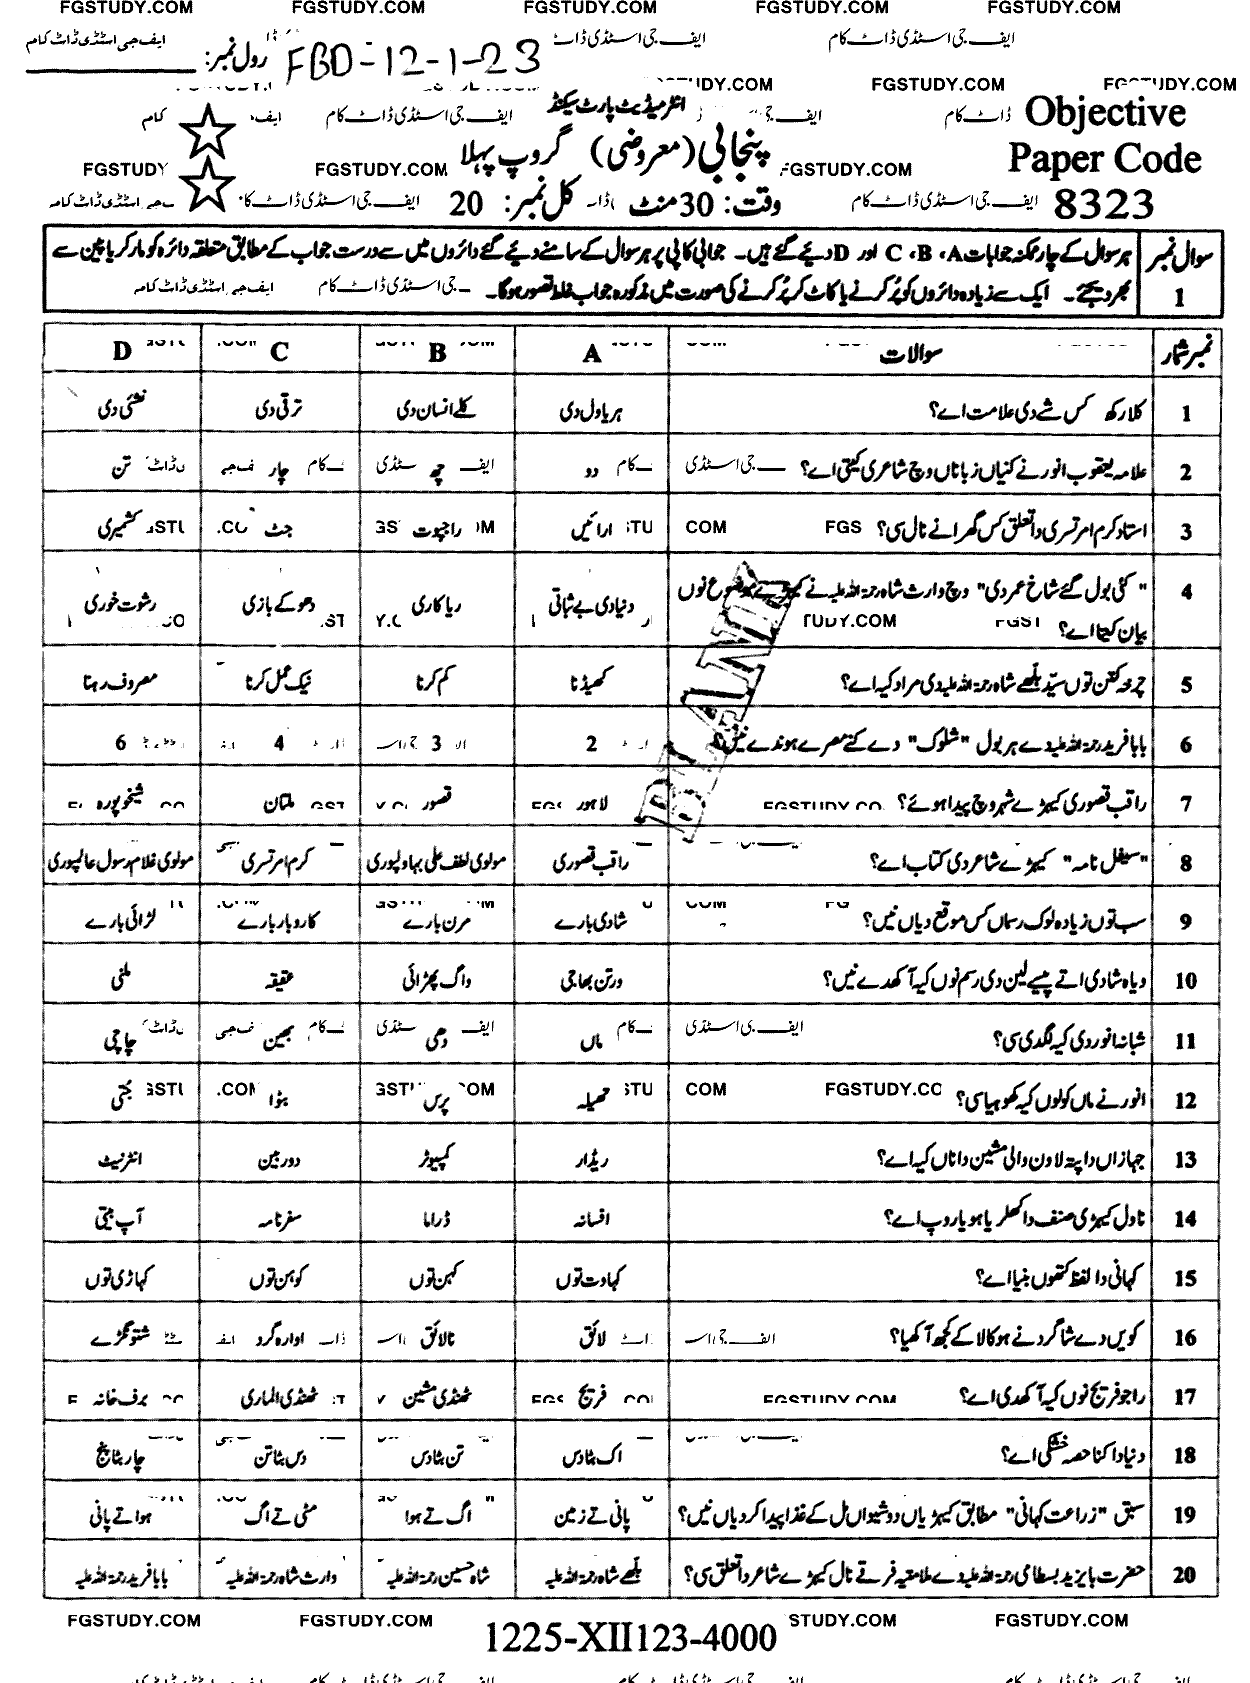 FGSTUDY.COM FGSTUDY.COM FGSTUDY.COM FGSTUDY.COM FGSTUDY.COM
ایف جی اسٹڈی ڈاٹ کام ایف جی اسٹڈی ڈاٹ ایف جی اسٹڈی ڈاٹ کام
رول نمبر: FBD-12-1-23
FGSTUDY.COM
انٹرمیڈیٹ پارٹ سیکنڈ
Objective
پنجابی (معروضی) گروپ پہلا
Paper Code
FGSTUDY.COM
8323
وقت: 30 منٹ کل نمبر: 20
سوال نمبر 1
ہر سوال کے چار ممکنہ جوابات A، B، C اور D دیئے گئے ہیں۔ جوابی کاپی پر ہر سوال کے سامنے دیئے گئے دائروں میں سے درست جواب کے مطابق متعلقہ دائرہ کو مارکر یا پین سے
بھر دیجئے۔ ایک سے زیادہ دائروں کو پُر کرنے یا کاٹ کر پُر کرنے کی صورت میں مذکورہ جواب غلط تصور ہوگا۔
نمبر شمار سوالات A B C D
1 کلا رکھ کس شے دی علامت اے؟ ہریاول دی کلے انسان دی ترقی دی نشئی دی
2 علامہ یعقوب انور نے کنیاں زباناں وچ شاعری کیتی اے؟ دو چھ چار تن
3 استاد کرم امرتسری دا تعلق کس گھرانے نال سی؟ ارائیں راجپوت جٹ کشمیری
4 "کئی بول گئے شاخ عمر دی" وچ وارث شاہ رحمۃ اللہ علیہ نے کیہڑے موضوع نوں دنیا دی بے ثباتی ریاکاری دھوکے بازی رشوت خوری
بیان کیتا اے؟
5 چرخہ کتن توں سیّد بلھے شاہ رحمۃ اللہ علیہ دی مراد کیہ اے؟ کھیڈنا کم کرنا نیک عمل کرنا مصروف رہنا
6 بابا فرید رحمۃ اللہ علیہ دے ہر بول "شلوک" دے کتنے مصرعے ہوندے نیں؟ 2 3 4 6
7 راقب قصوری کیہڑے شہر وچ پیدا ہوئے؟ لاہور قصور ملتان شیخوپورہ
8 "سیفل نامہ" کیہڑے شاعر دی کتاب اے؟ راقب قصوری مولوی لطف علی بہاولپوری کرم امرتسری مولوی غلام رسول عالمپوری
9 سب توں زیادہ لوک رسماں کس موقع دیاں نیں؟ شادی بارے مرن بارے کاروبار بارے لڑائی بارے
10 ویاہ شادی اتے پیسے لین دی رسم نوں کیہ آکھدے نیں؟ ورتن بھاجی واگ پھڑائی عقیقہ ملنی
11 شبانہ انور دی کیہ لگدی سی؟ ماں دھی بھین چاچی
12 انور نے ماں کولوں کیہ کھوہیا سی؟ تھیلہ پرس بٹوا جتی
13 جہازاں دا پتہ لاون والی مشین دا ناں کیہ اے؟ ریڈار کمپیوٹر دوربین انٹرنیٹ
14 ناول کیہڑی صنف دا کھلریا ہویا روپ اے؟ افسانہ ڈراما سفرنامہ آپ بیتی
15 کہانی دا لفظ کتھوں بنیا اے؟ کہاوت توں کہن توں کوہن توں کہاڑی توں
16 کویں دے شاگرد نے ہوکا لا کے کجھ آکھیا؟ لائق نالائق اوارہ گرد شتونگڑے
17 راجو فریج نوں کیہ آکھدی اے؟ فریج ٹھنڈی مشین ٹھنڈی الماری برف خانہ
18 دنیا دا کنا حصہ خشکی اے؟ اک بٹا دس تن بٹا دس دس بٹا تن چار بٹا پنج
19 سبق "زراعت کہانی" مطابق کیہڑیاں دو شیواں مل کے غذا پیدا کردیاں نیں؟ پانی تے زمین اگ تے ہوا مٹی تے اگ ہوا تے پانی
20 حضرت بایزید بسطامی رحمۃ اللہ علیہ دے ملامتیہ فرقے نال کیہڑے شاعر دا تعلق سی؟ بلھے شاہ رحمۃ اللہ علیہ شاہ حسین رحمۃ اللہ علیہ وارث شاہ رحمۃ اللہ علیہ بابا فرید رحمۃ اللہ علیہ
BLANK
FGSTUDY.COM FGSTUDY.COM STUDY.COM FGSTUDY.COM
1225-XII123-4000